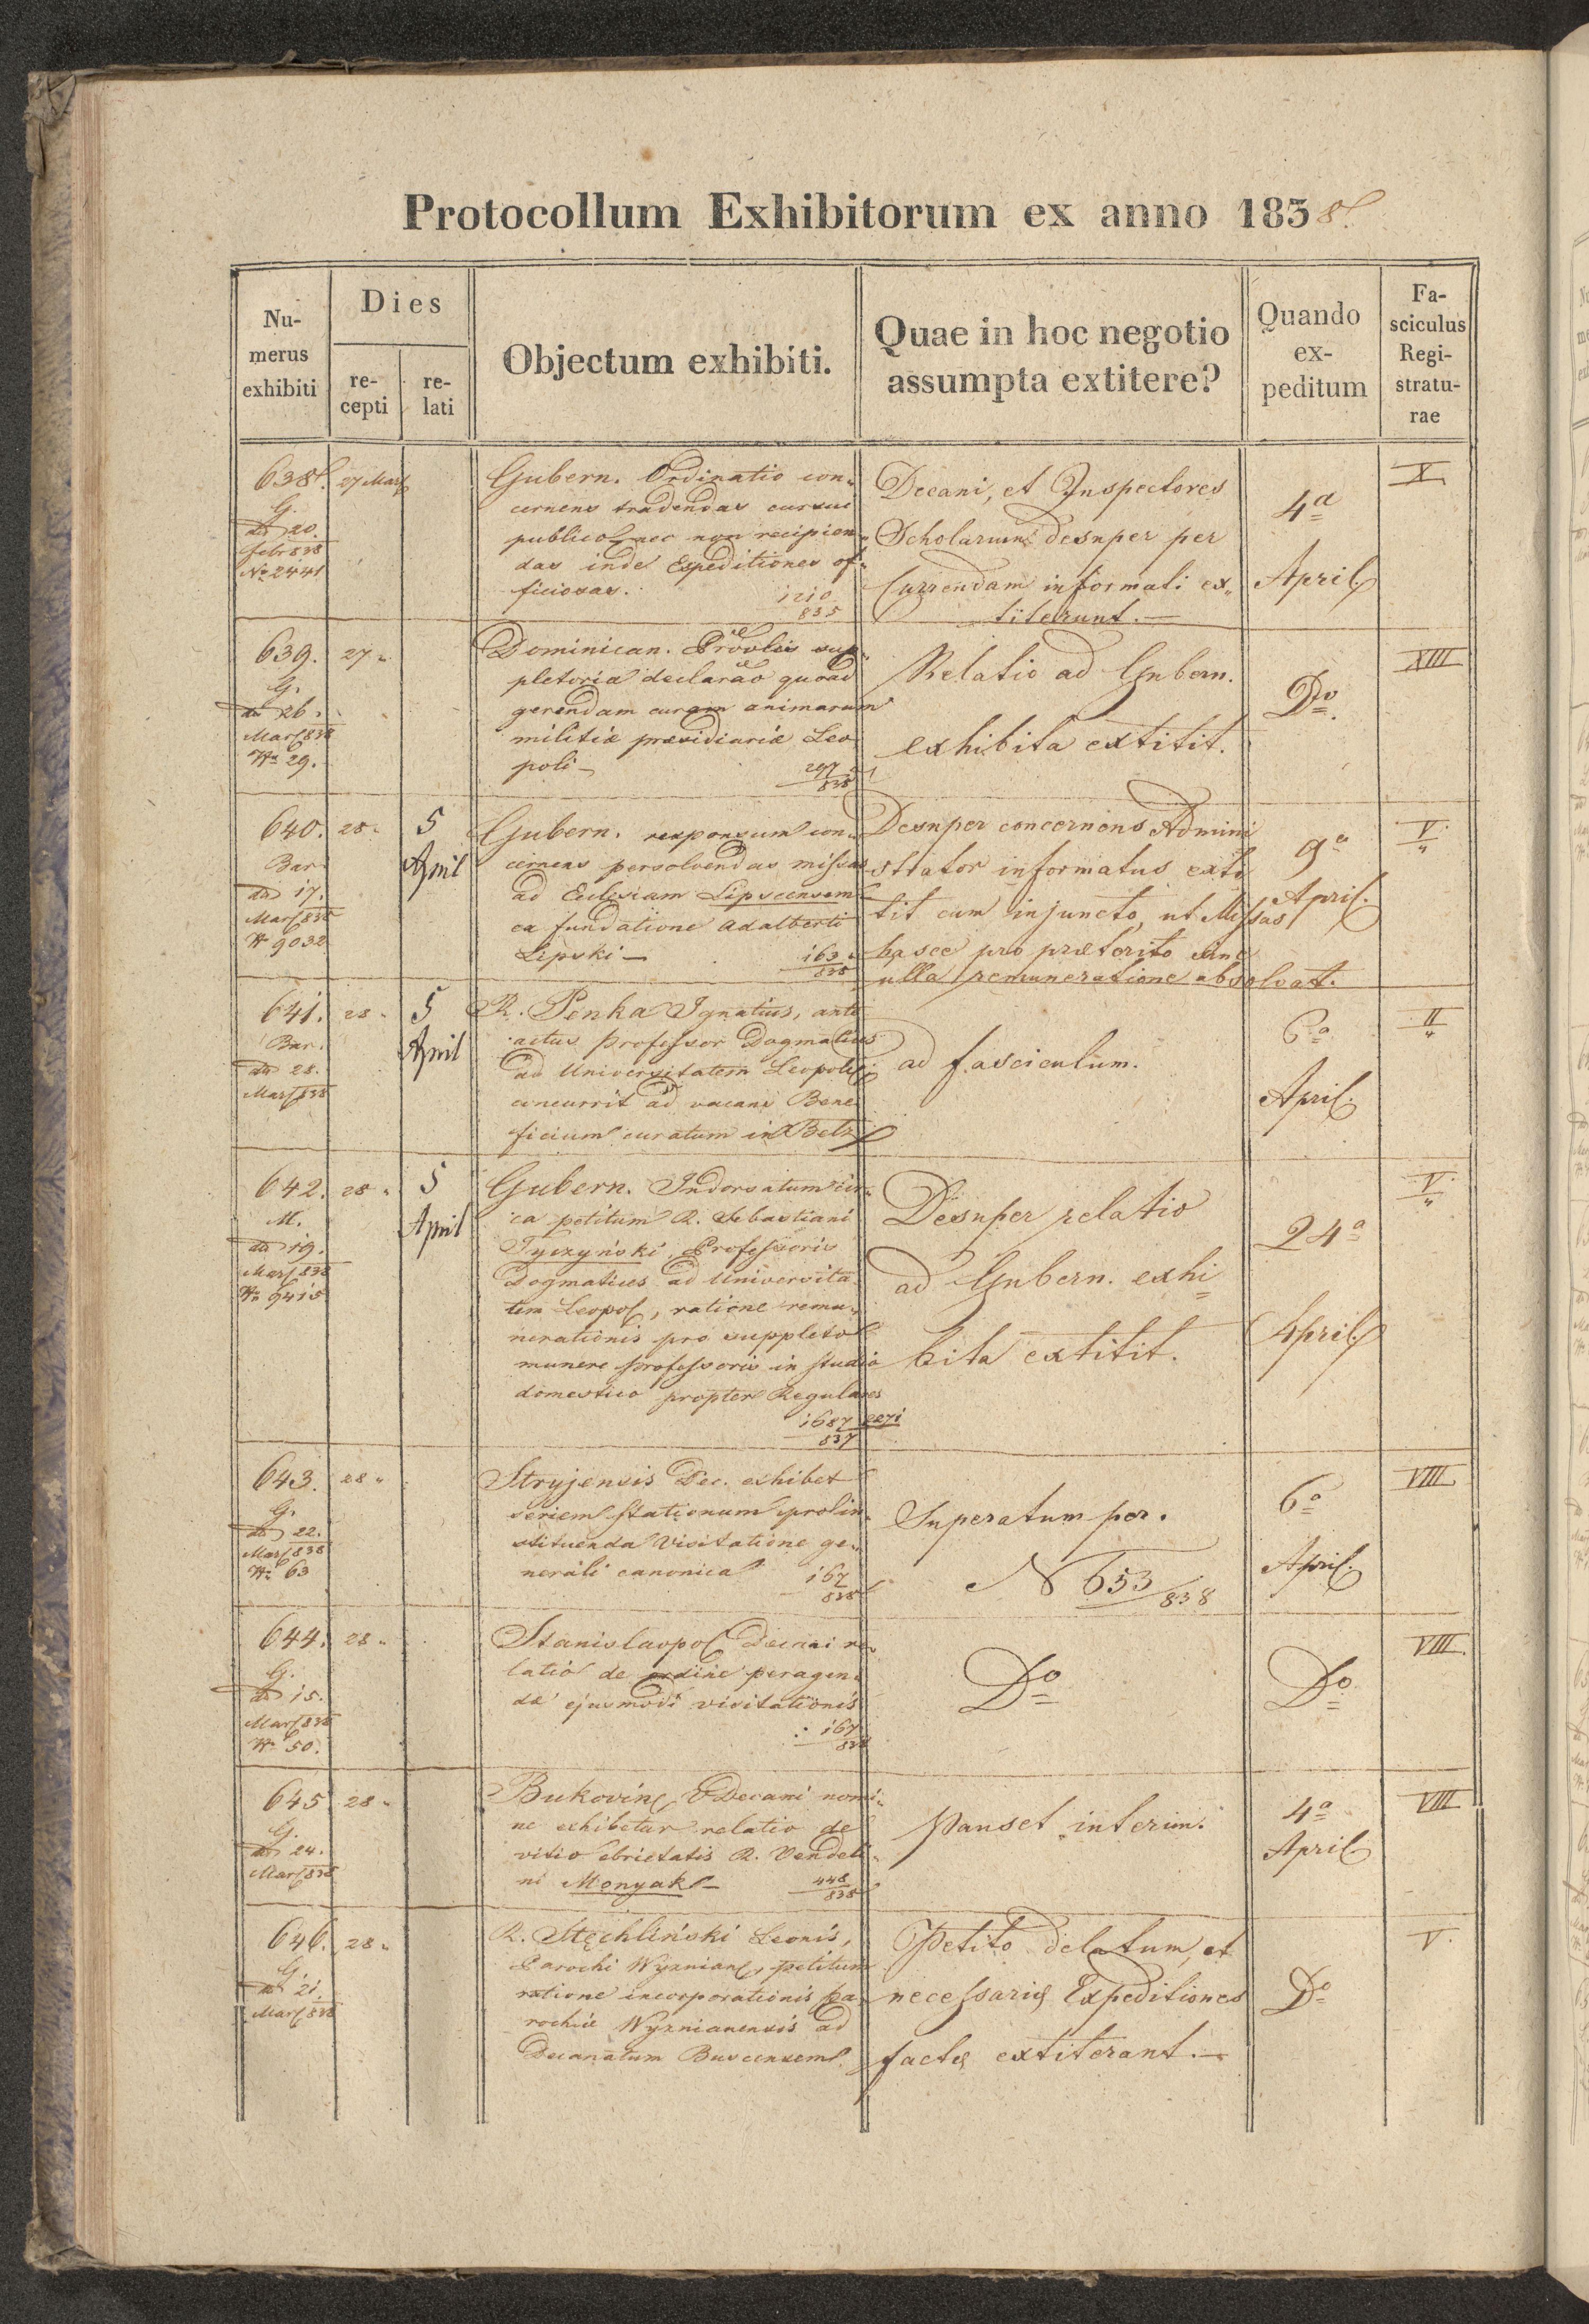 Protocollum Exhibitorum ex anno 1838.
Nu-
merus
exhibiti
Dies
re-
cepti
re-
lati
Objectum exhibiti.
Quae in hoc negotio
assumpta extitere?
Quando
ex-
peditum
Fa-
sciculus
Regi-
stratu-
rae
638. 27 Mar
G.
dd 20.
Febr 838
No 2441
Gubern. Ordinatio con„
cernens tradendas cursui
publico, nec non recipien„
das inde Expeditiones of„
ficiosas. 1210
835
Decani, et Inspectores
Scholarum desuper per
Currendam informati ex„
titerunt.—
4a
April
X
639. 27„
G.
dd 26.
Mar 838
No 29.
Dominican. Provlis sup„
pletoria declarao quoad
gerendam curam animarum
militiæ præsidiariæ Leo
poli— 297
838
Relatio ad Gubern.
exhibita extitit.
Do.
XIII
640. 28„ 5
April
Bar
dd 17.
Mar 838
No 9032
Gubern. responsum con„
cernens persolvendas missas
ad Eclesiam Lipscensem
ex fundatione Adalberti
Lipski— 163
838
Desuper concernens Admini
strator informatus exti
tit cum injuncto, ut Missas
hasce pro præterito sine
ulla remuneratione absolvat.
9a
April.
V.
641. 28„ 5
April
Bar.
dd 28.
Mar 838
R. Penka Ignatius, ante
actus Professor Dogmatices
ad Universitatem Leopoli
concurrit ad vacans Bene
ficium curatum in Betz
ad fasciculum.
6a
April.
II
642. 28„ 5
April
M.
dd 19.
Mar 838
No 9415
Gubern. Indorsatum cir„
ca petitum R. Sebastiani
Tyczyński, Professoris
Dogmatices ad Universita
tem Leopol, ratione remu„
nerationis pro suppleto
munere Professoris in studio
domestico propter Regulares
1687 2271
837
Desuper relatio
ad Gubern. exhi
bita extitit.
24a
April
V.
643. 28„
G.
dd 22.
Mar 838
No 63
Stryjensis Dec. exhibet
seriem stationum pro in„
stituenda Visitatione ge„
nerali canonica 167
838
Superatum per.
N 653/838
6a
April.
VIII
644. 28„
G.
dd 15.
Mar 838
No 50.
Stanislaopol Decani re„
latio de ordine peragen„
dæ ejusmodi visitationis
167
838
Do
Do
VIII.
645 28„
G.
dd 24.
Mar 838
Bukovin, VDecani nomi„
ne exhibetur relatio de
vitio ebrietatis R. Vendeli„
ni Monyak— 448
838
Pauset interim.
4a
April
VIII
646. 28„
G.
dd 21.
Mar 838
R. Stęchliński Leonis,
Parochi Wyznian, petitum
ratione incorporationis pa„
rochiæ Wyznianensis ad
Decanatum Buscensem.
Petito delatum, et
necessariæ Expeditiones
factæ extiterant.—
Do
V.